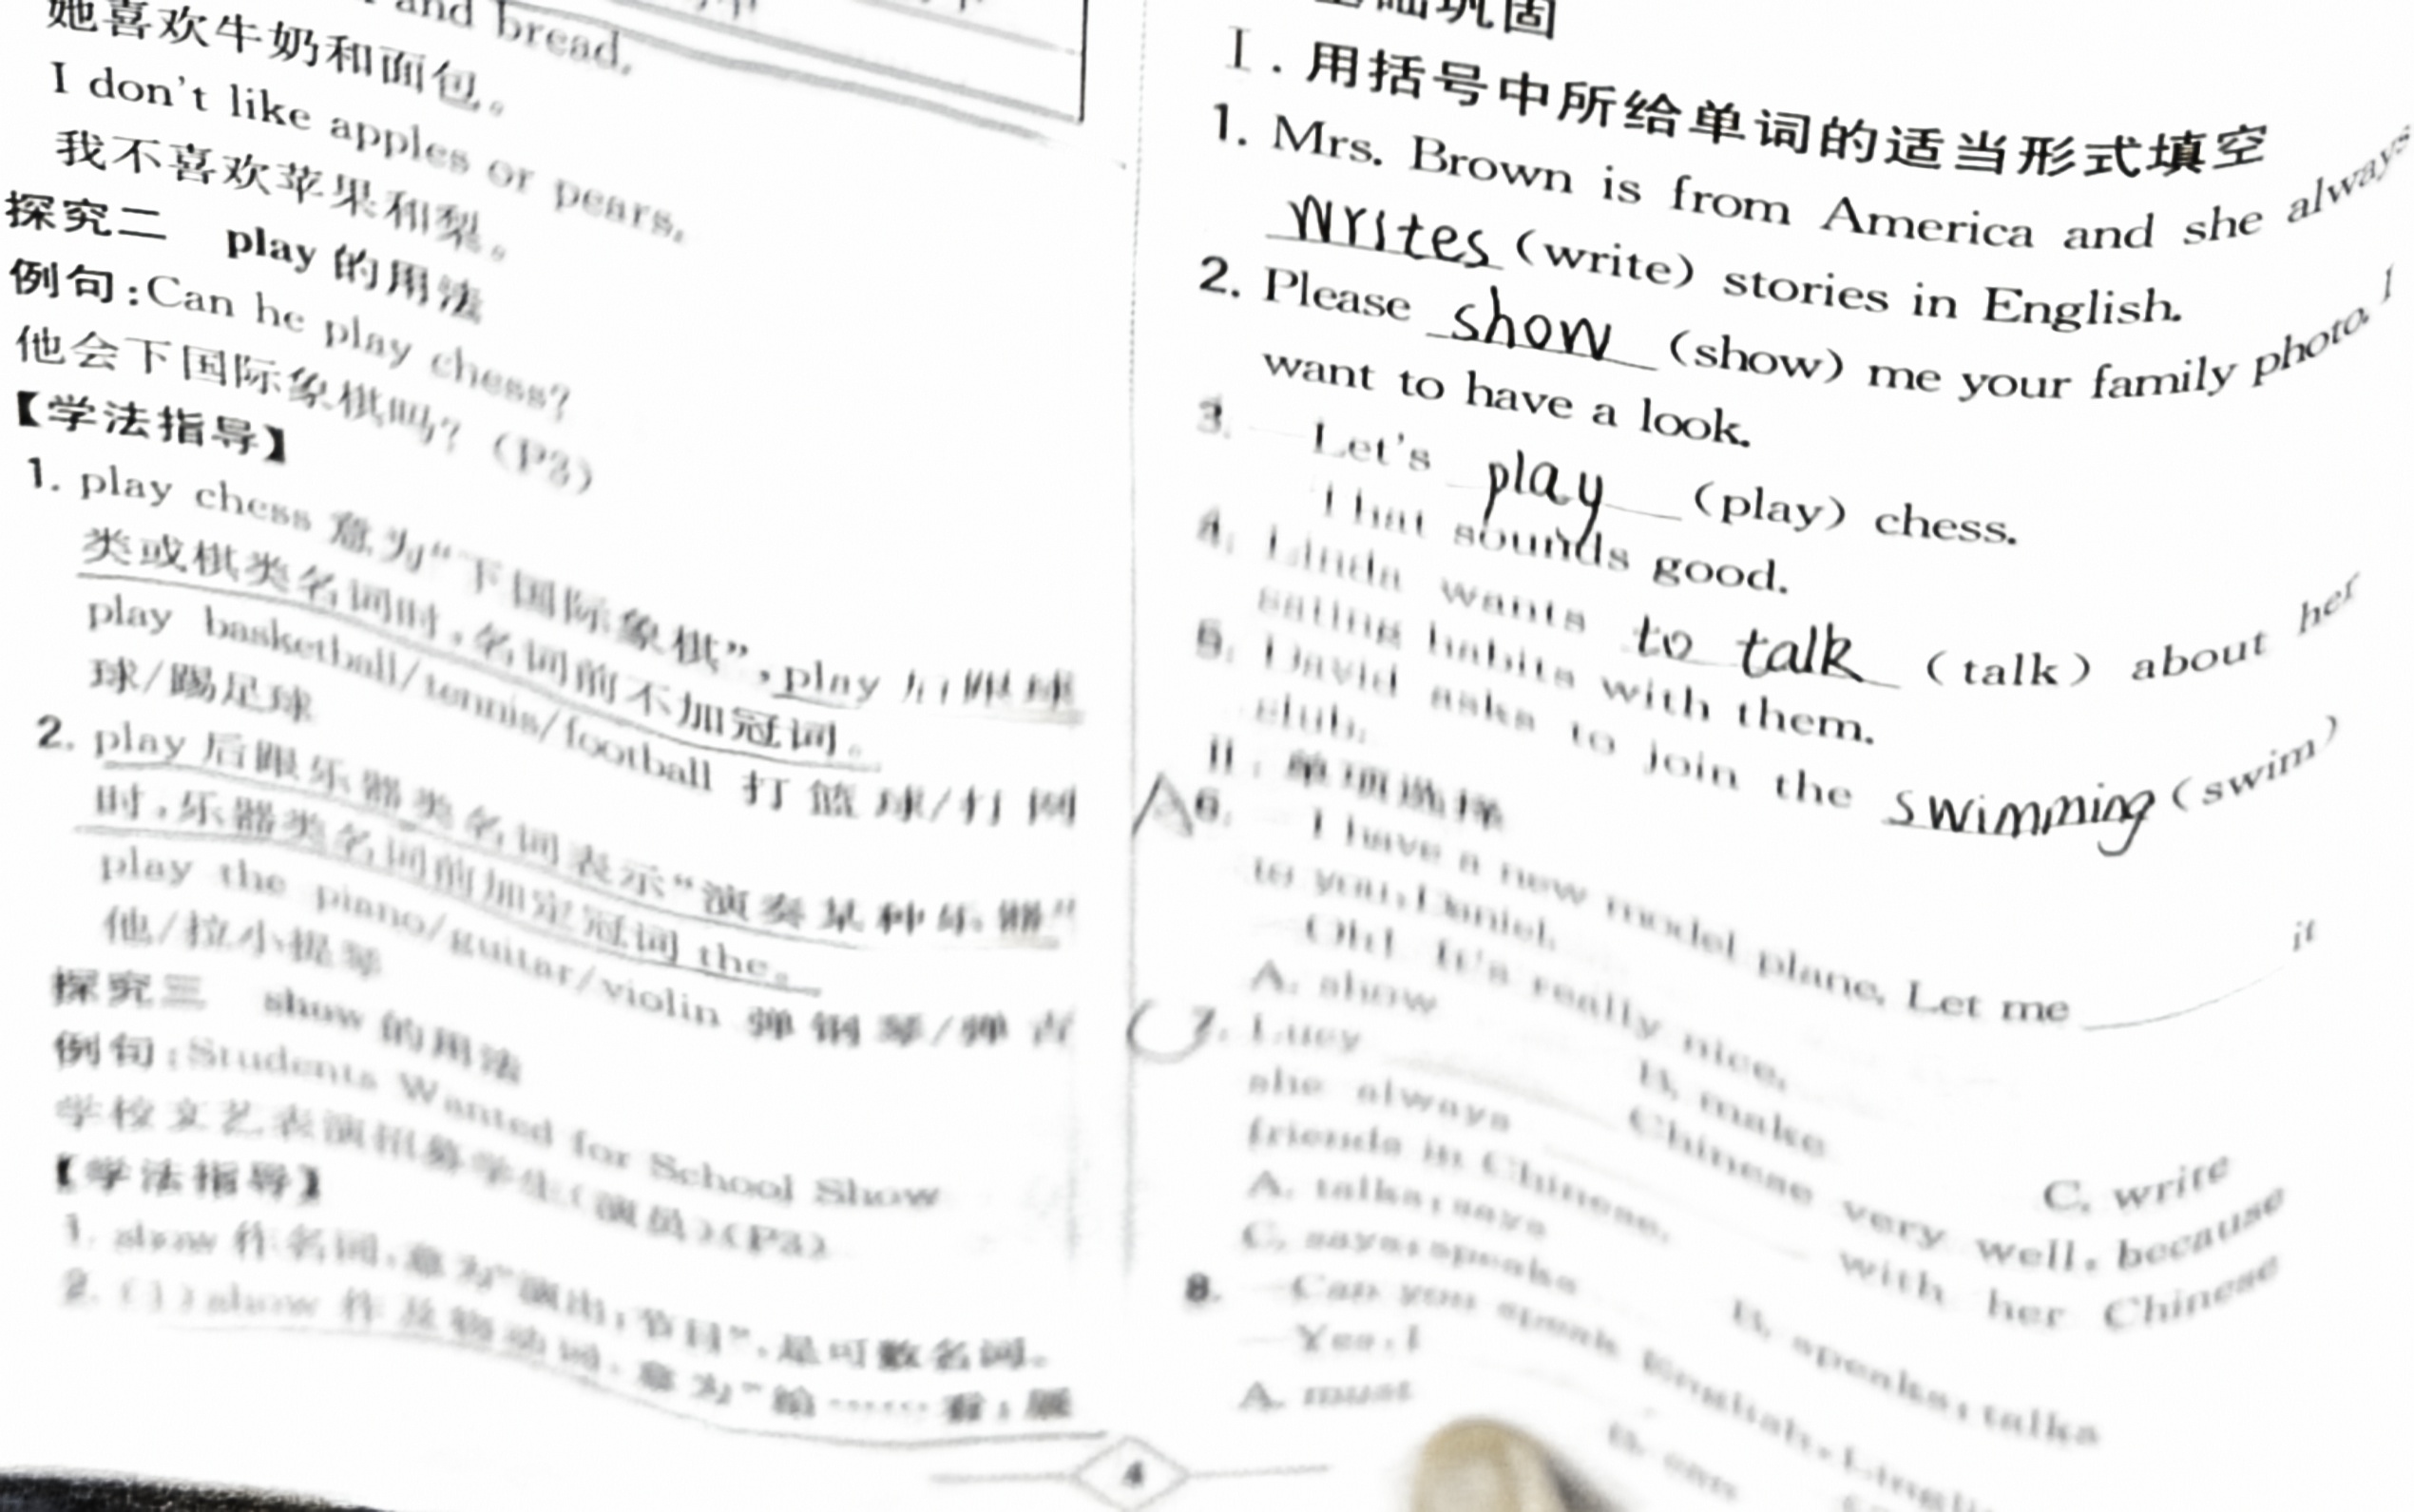 and bread.
她喜欢牛奶和面包。
I don't like apples or pears.
我不喜欢苹果和梨。
探究二 play 的用法
例句:Can he play chess?
他会下国际象棋吗? (P3)
【学法指导】
1. play chess 意为“下国际象棋”,play 后跟球
类或棋类名词时,名词前不加冠词。
play basketball/tennis/football 打篮球/打网
球/踢足球
2. play 后跟乐器类名词表示“演奏某种乐器”
时,乐器类名词前加定冠词 the。
play the piano/guitar/violin 弹钢琴/弹吉
他/拉小提琴
探究三 show 的用法
例句:Students Wanted for School Show
学校文艺表演招募学生(演员)(P3)
【学法指导】
1. show 作名词,意为“演出;节目”,是可数名词。
2. (1)show 作及物动词,意为“给……看;展
4
基础巩固
Ⅰ. 用括号中所给单词的适当形式填空
1. Mrs. Brown is from America and she always
writes (write) stories in English.
2. Please show (show) me your family photo. I
want to have a look.
3. —Let's play (play) chess.
That sounds good.
4. Linda wants to talk (talk) about her
eating habits with them.
5. David asks to join the swimming (swim)
club.
Ⅱ. 单项选择
A 6. —I have a new model plane. Let me ______ it
to you, Daniel.
—Oh! It's really nice.
A. show B. make C. write
C 7. Lucy ______ Chinese very well, because
she always ______ with her Chinese
friends in Chinese.
A. talks; says B. speaks; talks
C. says; speaks
8. —Can you speak English,
—Yes, I
A. must B. can